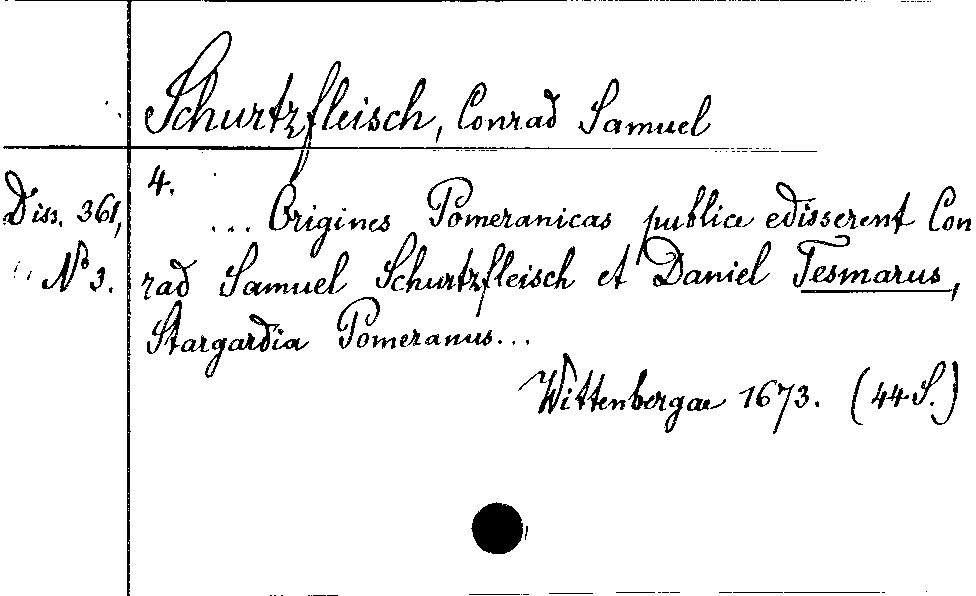 Schurtzfleisch, Conrad Samuel
4.
Diss. 361,
N° 3.
... Origines Pomeranicas publice edisserent Con
rad Samuel Schurtzfleisch et Daniel Tesmarus,
Stargardia Pomeranus...
Wittenbergae 1673. (44 S.)